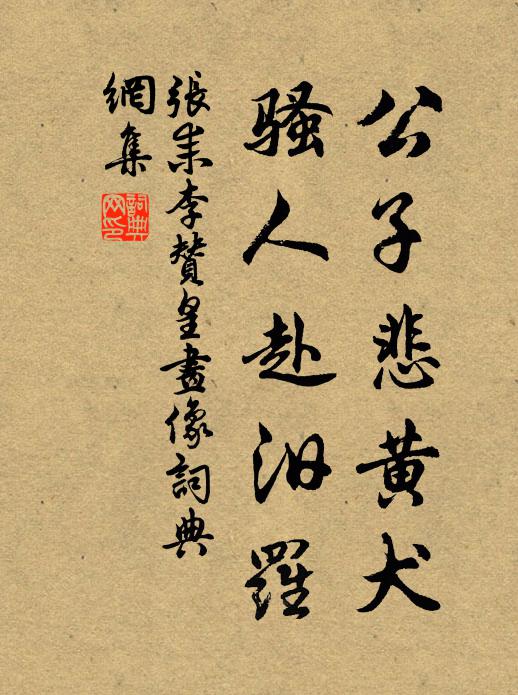 公子悲黄犬
騷人赴汨羅
張耒李贊皇畫像詞典
網集
詞典
网印